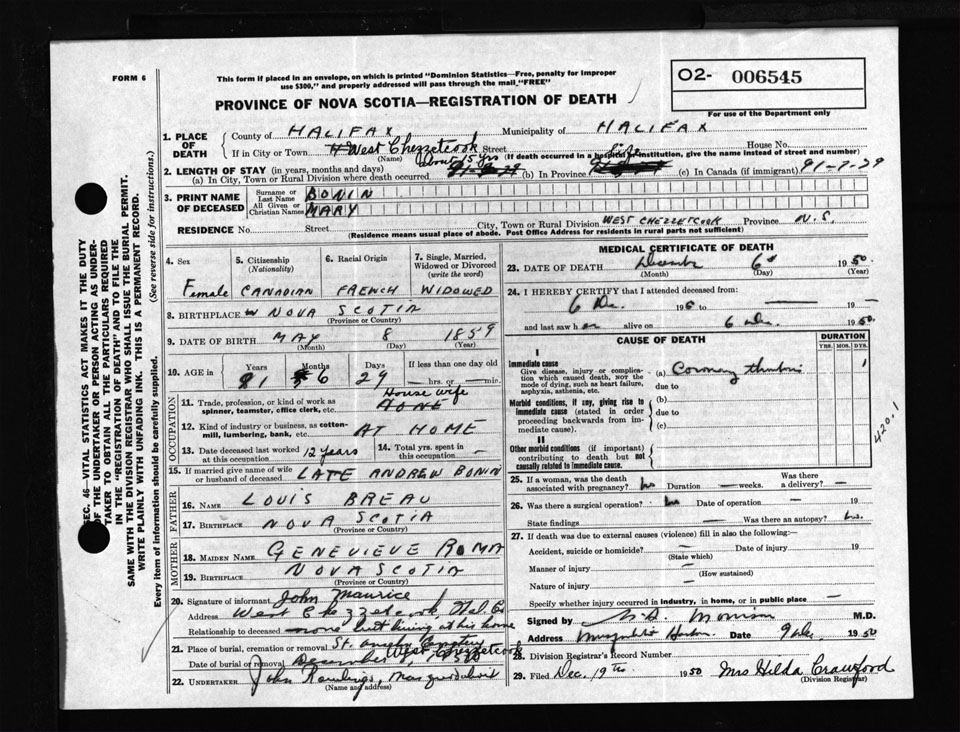 FORM 6
This form if placed in an envelope, on which is printed "Dominion Statistics—Free, penalty for improper
use $300," and properly addressed will pass through the mail "FREE"
PROVINCE OF NOVA SCOTIA—REGISTRATION OF DEATH
O2- 006545
For use of the Department only
SEC. 46—VITAL STATISTICS ACT MAKES IT THE DUTY
OF THE UNDERTAKER OR PERSON ACTING AS UNDER-
TAKER TO OBTAIN ALL THE PARTICULARS REQUIRED
IN THE "REGISTRATION OF DEATH" AND TO FILE THE
SAME WITH THE DIVISION REGISTRAR WHO SHALL ISSUE THE BURIAL PERMIT.
WRITE PLAINLY WITH UNFADING INK. THIS IS A PERMANENT RECORD.
Every item of Information should be carefully supplied. (See reverse side for instructions.)
1. PLACE OF DEATH
County of HALIFAX Municipality of HALIFAX
If in City or Town West Chezzetcook Street House No.
(Name) (If death occurred in a hospital or institution, give the name instead of street and number)
2. LENGTH OF STAY (in years, months and days)
(a) In City, Town or Rural Division where death occurred about 15 yrs (b) In Province Life (c) In Canada (if immigrant) 91-7-29
3. PRINT NAME OF DECEASED
Surname or Last Name BONIN
All Given or Christian Names MARY
RESIDENCE No. Street City, Town or Rural Division WEST CHEZZETCOOK Province N.S.
(Residence means usual place of abode. Post Office Address for residents in rural parts not sufficient)
4. Sex Female
5. Citizenship (Nationality) CANADIAN
6. Racial Origin FRENCH
7. Single, Married, Widowed or Divorced (write the word) WIDOWED
8. BIRTHPLACE NOVA SCOTIA
(Province or Country)
9. DATE OF BIRTH MAY 8 1859
(Month) (Day) (Year)
10. AGE in Years Months Days If less than one day old
91 6 29 — hrs. or — min.
OCCUPATION
11. Trade, profession, or kind of work as spinner, teamster, office clerk, etc. House wife
12. Kind of industry or business, as cotton-mill, lumbering, bank, etc. AT HOME
13. Date deceased last worked at this occupation 12 years
14. Total yrs. spent in this occupation —
15. If married give name of wife or husband of deceased LATE ANDREW BONIN
FATHER
16. NAME LOUIS BREAU
17. BIRTHPLACE NOVA SCOTIA
(Province or Country)
MOTHER
18. MAIDEN NAME GENEVIEVE ROMA
19. BIRTHPLACE NOVA SCOTIA
(Province or Country)
20. Signature of informant John Maurice
Address West Chezzetcook Hal. Co
Relationship to deceased none but living at his home
21. Place of burial, cremation or removal West Chezzetcook
Date of burial or removal December 1950
22. UNDERTAKER John Rawlings, Musquodoboit
(Name and address)
MEDICAL CERTIFICATE OF DEATH
23. DATE OF DEATH December 6 1950
(Month) (Day) (Year)
24. I HEREBY CERTIFY that I attended deceased from:
6 Dec. 195 to — 19—
and last saw her alive on 6 Dec. 1950.
CAUSE OF DEATH
DURATION
YRS. MOS. DYS.
I
Immediate cause
Give disease, injury or complication which caused death, nor the mode of dying, such as heart failure, asphyxia, asthenia, etc.
(a) Coronary thrombosis 1
due to
Morbid conditions, if any, giving rise to immediate cause (stated in order proceeding backwards from immediate cause).
(b)
due to
(c)
II
Other morbid conditions (if important) contributing to death but not causally related to immediate cause.
420.1
25. If a woman, was the death associated with pregnancy? No Duration — weeks. Was there a delivery? —
26. Was there a surgical operation? No Date of operation — 19
State findings — Was there an autopsy? No.
27. If death was due to external causes (violence) fill in also the following:—
Accident, suicide or homicide? — Date of injury 19
(State which)
Manner of injury —
(How sustained)
Nature of injury —
Specify whether injury occurred in industry, in home, or in public place —
Signed by Morrison M.D.
Address Musquodoboit Harbour Date 9 Dec 1950
28. Division Registrar's Record Number
29. Filed Dec. 19th 1950 Mrs Hilda Crawford
(Division Registrar)